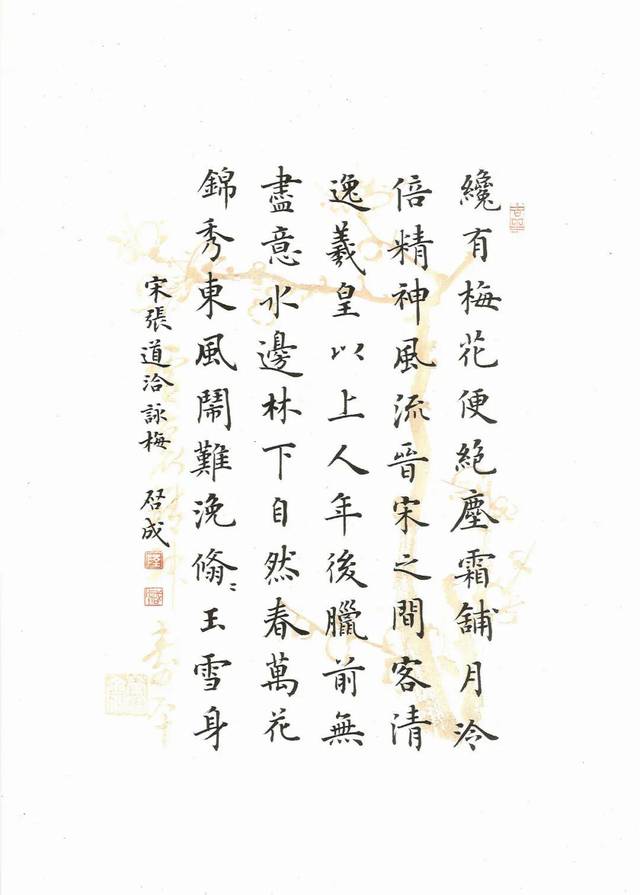 纔有梅花便絕塵霜舖月冷
倍精神風流晉宋之間客清
逸羲皇以上人年後臘前無
盡意水邊林下自然春萬花
錦秀東風鬧難浼翛〻玉雪身
宋張道洽詠梅 啓成